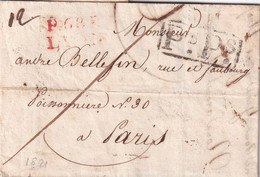 12
P.
L.
Monsieur
andre Bellefin, rue et faubourg
Poissonniere N. 30
a Paris
1821